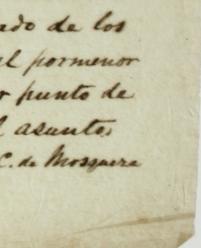 ado de los
el pormenor
r punto de
l asunto,
C. de Mosquera